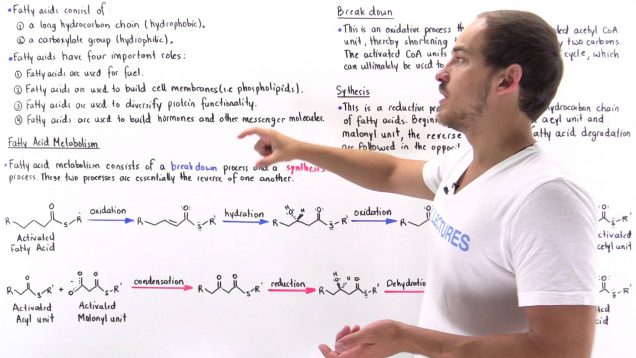 • Fatty acids consist of:
① a long hydrocarbon chain (hydrophobic).
② a carboxylate group (hydrophilic).
• Fatty acids have four important roles:
① Fatty acids are used for fuel.
② Fatty acids are used to build cell membranes (i.e phospholipids).
③ Fatty acids are used to diversify protein functionality.
④ Fatty acids are used to build hormones and other messenger molecules.
Fatty Acid Metabolism
• Fatty acid metabolism consists of a breakdown process and a synthesis
process. These two processes are essentially the reverse of one another.
Break down
• This is an oxidative process acetyl CoA
unit, thereby shortening two carbons.
The activated CoA units cycle, which
can ultimately be used to
Sythesis
• This is a reductive hydrocarbon chain
of fatty acids. acyl unit and
malonyl unit, the reverse fatty acid degradation
are followed in the
oxidation hydration oxidation
R S-R' R S-R' R H O S-R'
Activated
Fatty Acid
acetyl unit
R S-R' + S-R' condensation R S-R' reduction R H O H S-R' Dehydration
Activated
Acyl unit
Activated
Malonyl unit
acid
LECTURES